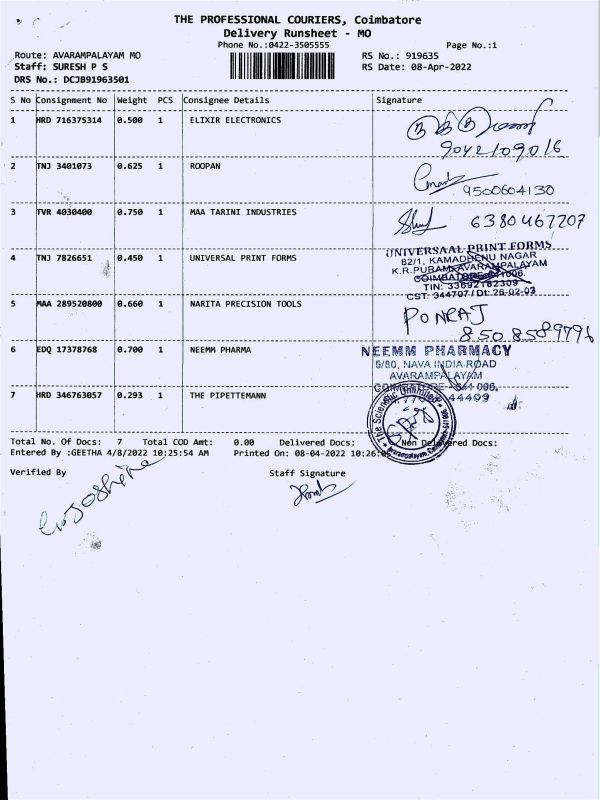 THE PROFESSIONAL COURIERS, Coimbatore
Delivery Runsheet - MO
Phone No.:0422-3505555
Page No.:1
Route: AVARAMPALAYAM MO
RS No.: 919635
Staff: SURESH P S
RS Date: 08-Apr-2022
DRS No.: DCJB91963501
S No Consignment No Weight PCS Consignee Details Signature
1 HRD 716375314 0.500 1 ELIXIR ELECTRONICS
9042109016
2 TNJ 3401073 0.625 1 ROOPAN
9500604130
3 TVR 4030400 0.750 1 MAA TARINI INDUSTRIES
6380467207
4 TNJ 7826651 0.450 1 UNIVERSAL PRINT FORMS
UNIVERSAAL PRINT FORMS
82/1, KAMADHENU NAGAR
K.R.PURAM AVARAMPALAYAM
TIN: 33692182309
CST: 344707 / Dt: 26-02-03
5 MAA 289520800 0.660 1 NARITA PRECISION TOOLS
PONRAJ
8508589796
6 EDQ 17378768 0.700 1 NEEMM PHARMA
NEEMM PHARMACY
5/80, NAVA INDIA ROAD
AVARAMPALAYAM
COIMBATORE - 641 006.
7 HRD 346763057 0.293 1 THE PIPETTEMANN
44409
The Scientific Unlimited
Total No. Of Docs: 7 Total COD Amt: 0.00 Delivered Docs: Non Delivered Docs:
Entered By :GEETHA 4/8/2022 10:25:54 AM Printed On: 08-04-2022 10:26:
Verified By Staff Signature